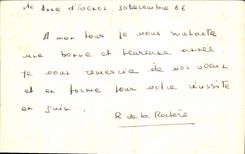 30 Decembre 66
A mon tour je vous souhaite
une bonne et heureuse année
je vous remercie de vos voeux
et en forme pour votre réussite
en
R de la Rochère